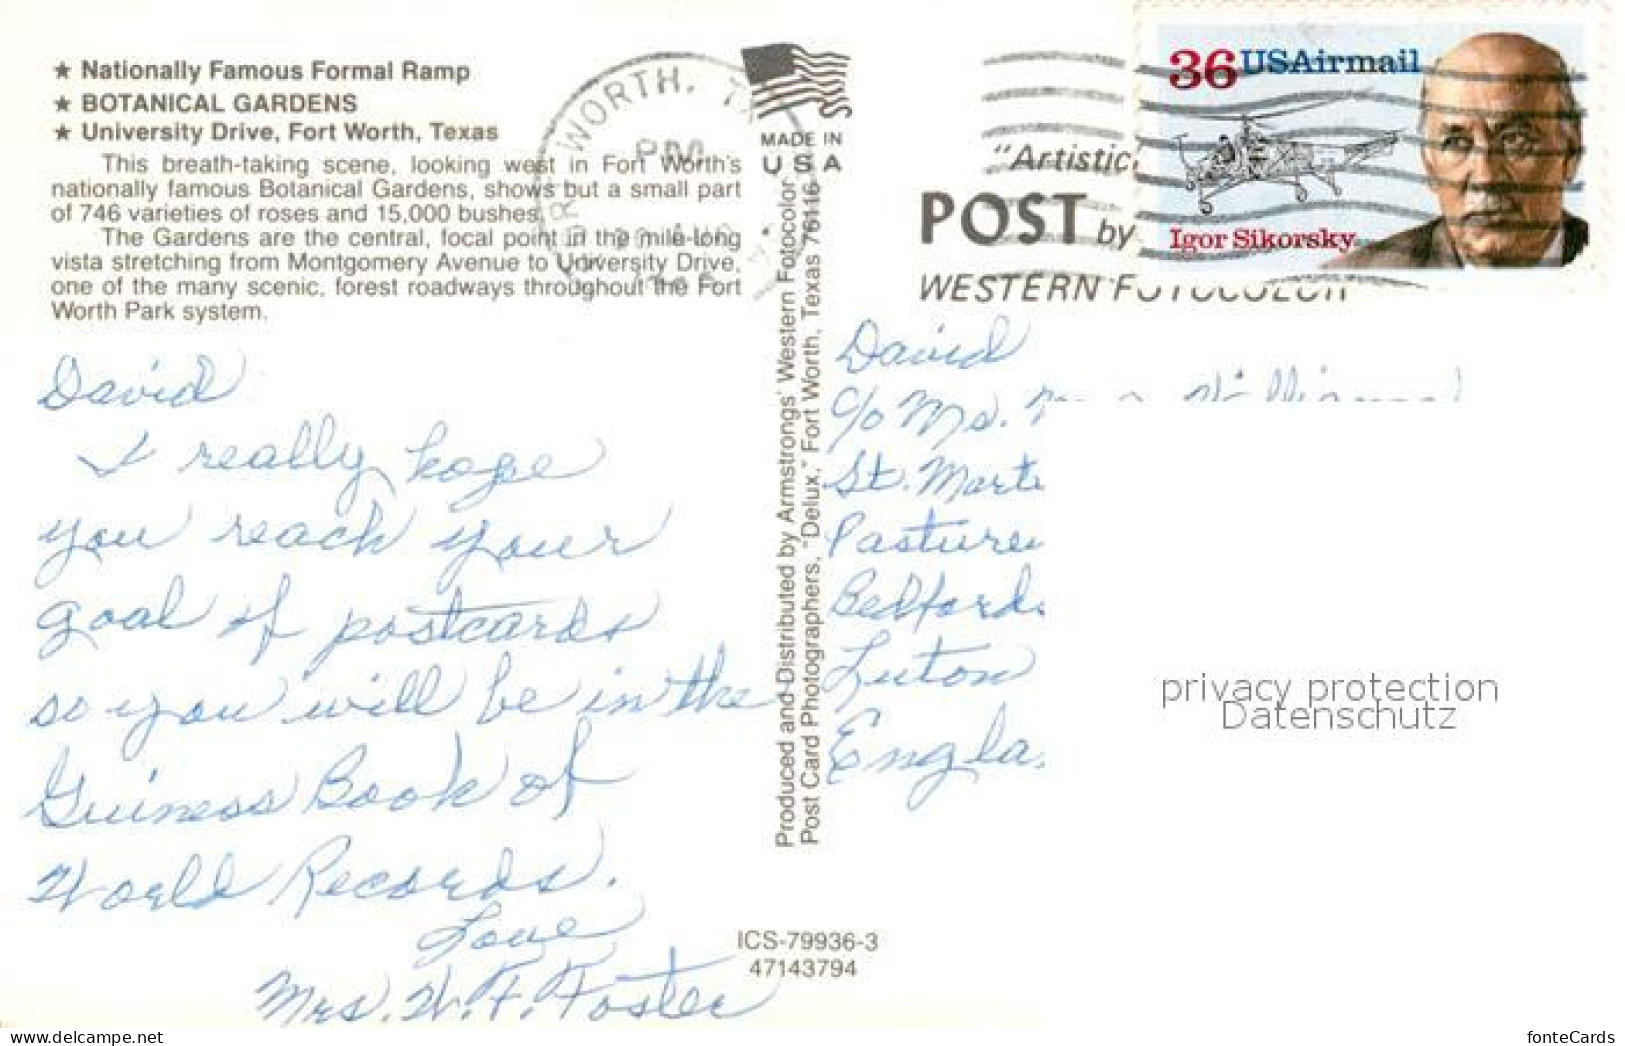 ★ Nationally Famous Formal Ramp
★ BOTANICAL GARDENS
★ University Drive, Fort Worth, Texas
This breath-taking scene, looking west in Fort Worth's
nationally famous Botanical Gardens, shows but a small part
of 746 varieties of roses and 15,000 bushes.
The Gardens are the central, focal point in the mile-long
vista stretching from Montgomery Avenue to University Drive,
one of the many scenic, forest roadways throughout the Fort
Worth Park system.
David
I really hope
you reach your
goal of postcards
so you will be in the
Guiness Book of
World Records.
Love
Mrs. W. F. Foster
WORTH, TX
PM
AUG
MADE IN
USA
Produced and Distributed by Armstrongs' Western Fotocolor
Post Card Photographers, "Delux," Fort Worth, Texas 76116
ICS-79936-3
47143794
"Artistic
POST by
WESTERN FOTOCOLOR
36 USAirmail
Igor Sikorsky
David
c/o Ms.
St. Marti
Pasture
Bedfords
Luton
Engla
privacy protection
Datenschutz
www.delcampe.net
fonteCards